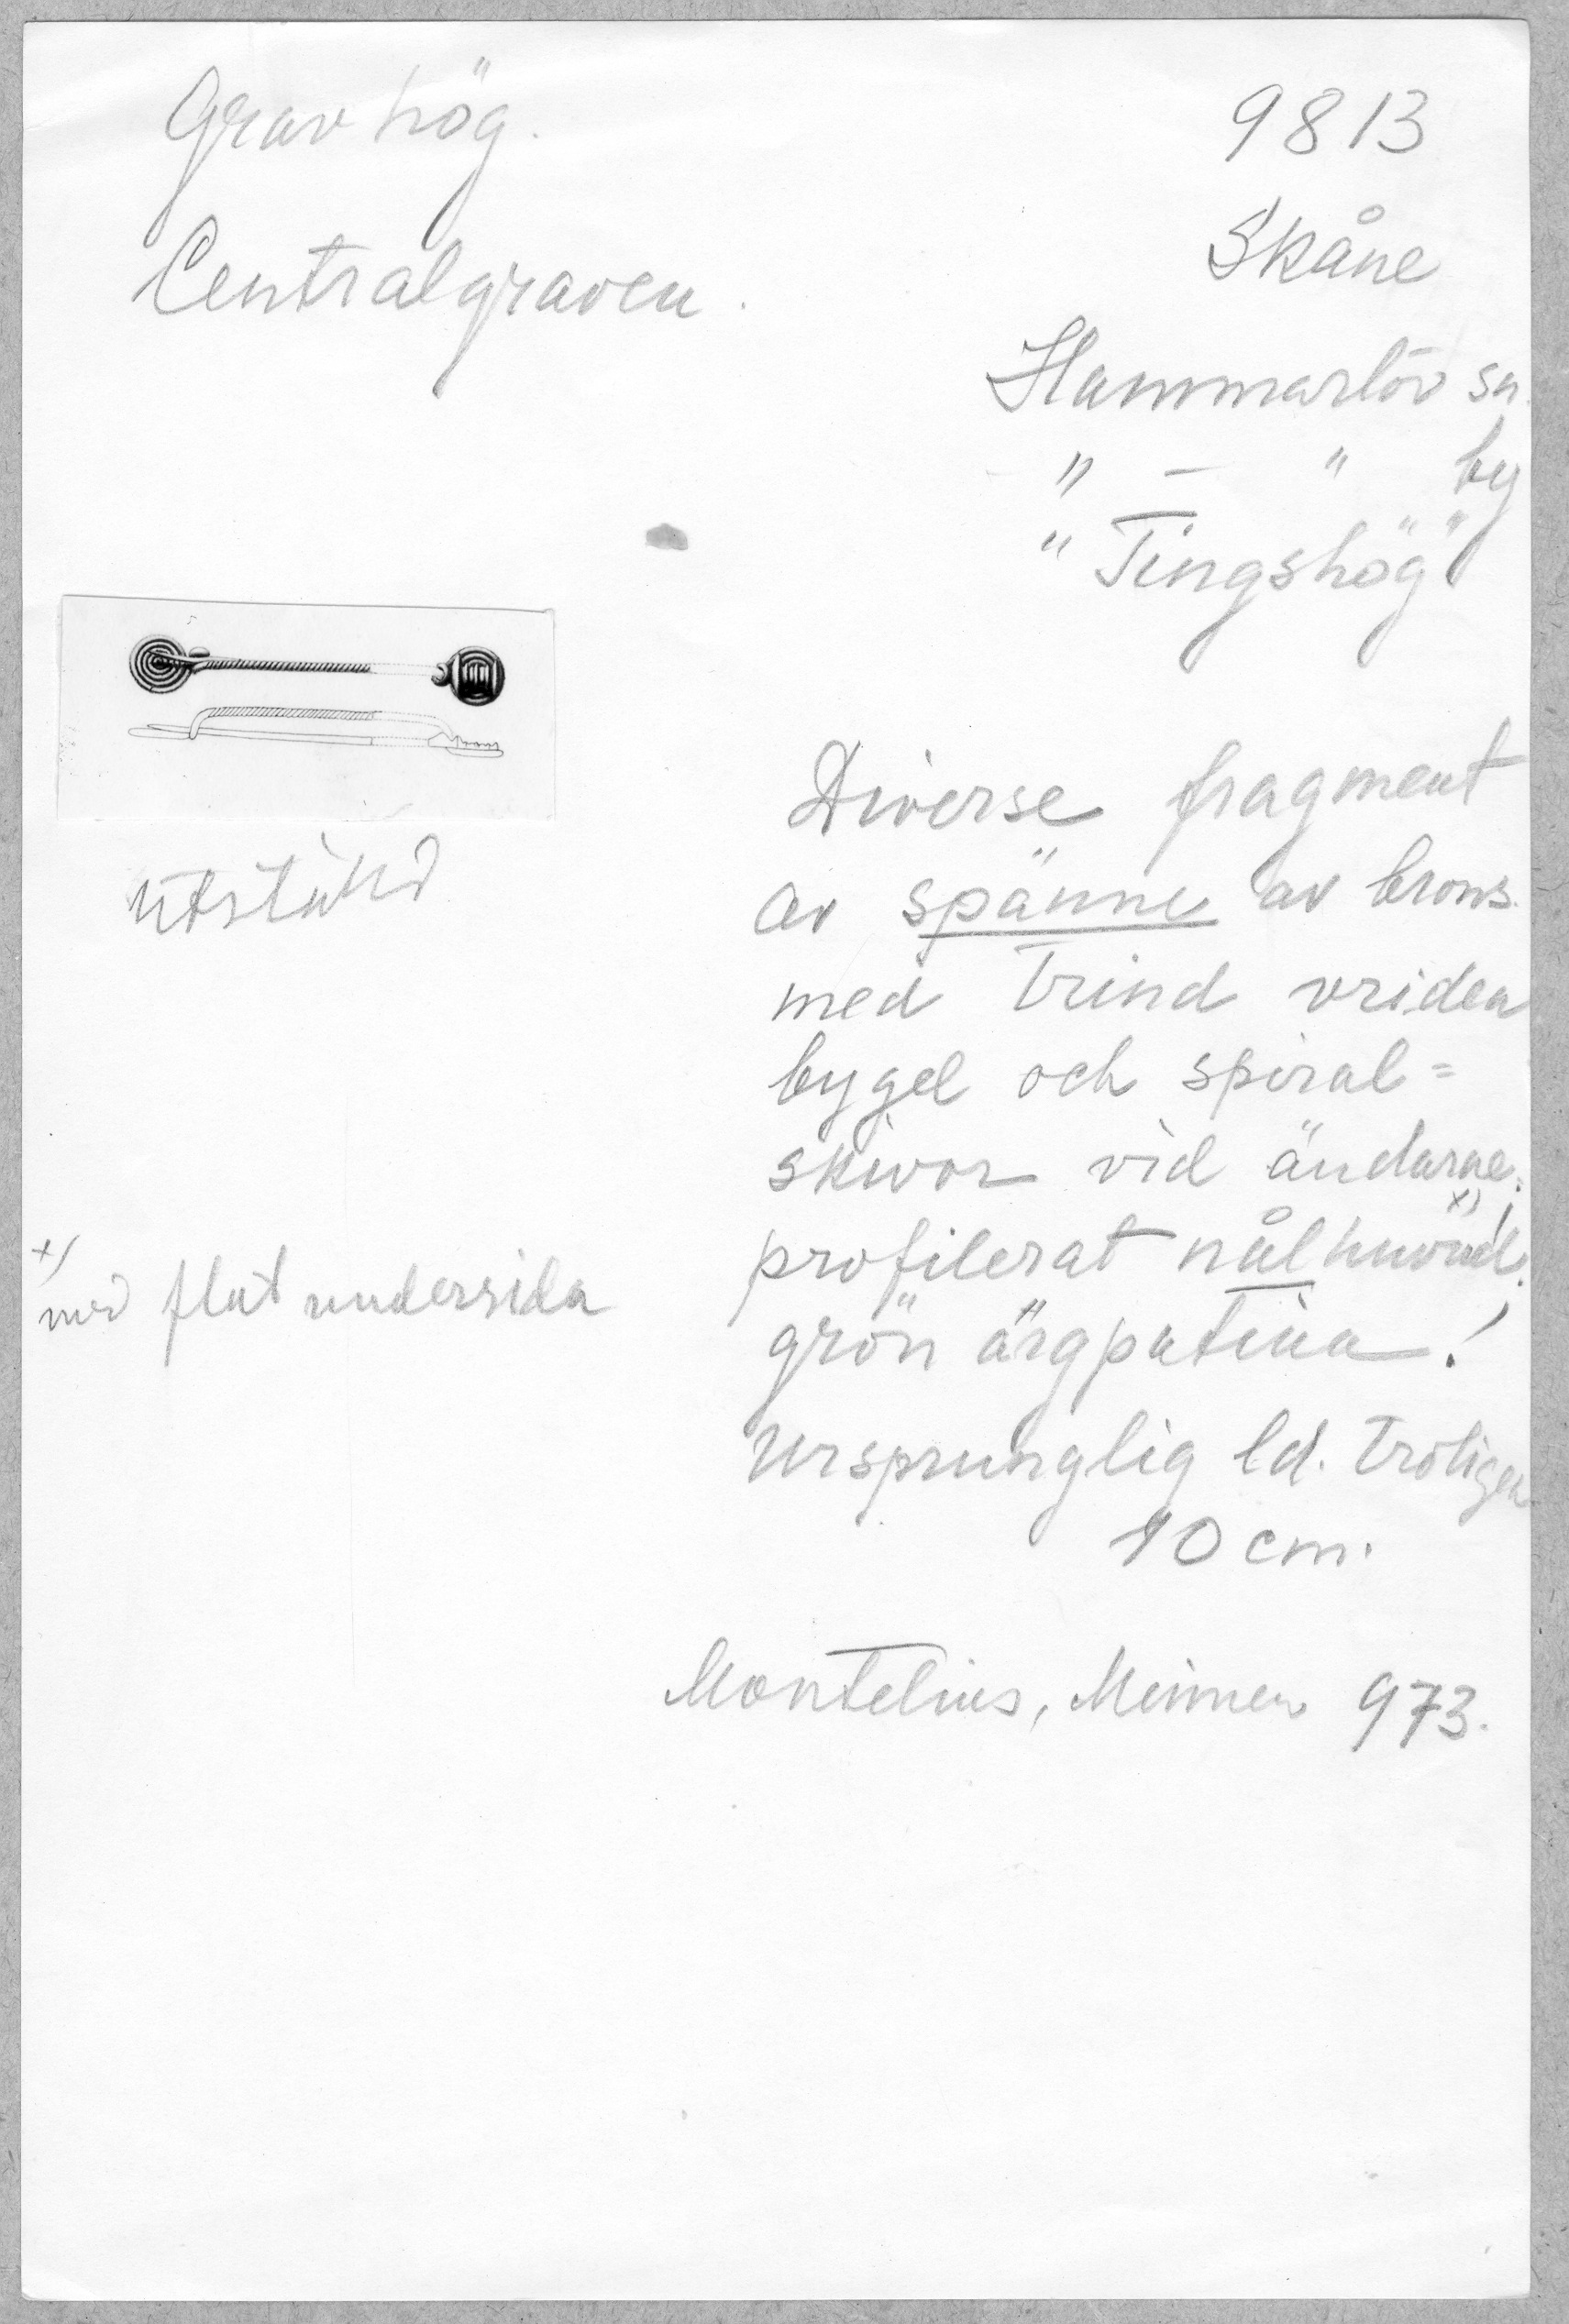 Gravhög.
Centralgraven.
9813
Skåne
Hammarlöv sn.
" — " by
"Tingshög"
utställd
Diverse fragment
av spänne av brons.
med trind vriden
bygel och spiral=
skivor vid ändarne.
profilerat nålhuvud. x)
grön ärgpatina!
Ursprunglig ld. troligen
10 cm.
x)
med flat undersida
Montelius, Minnen 973.